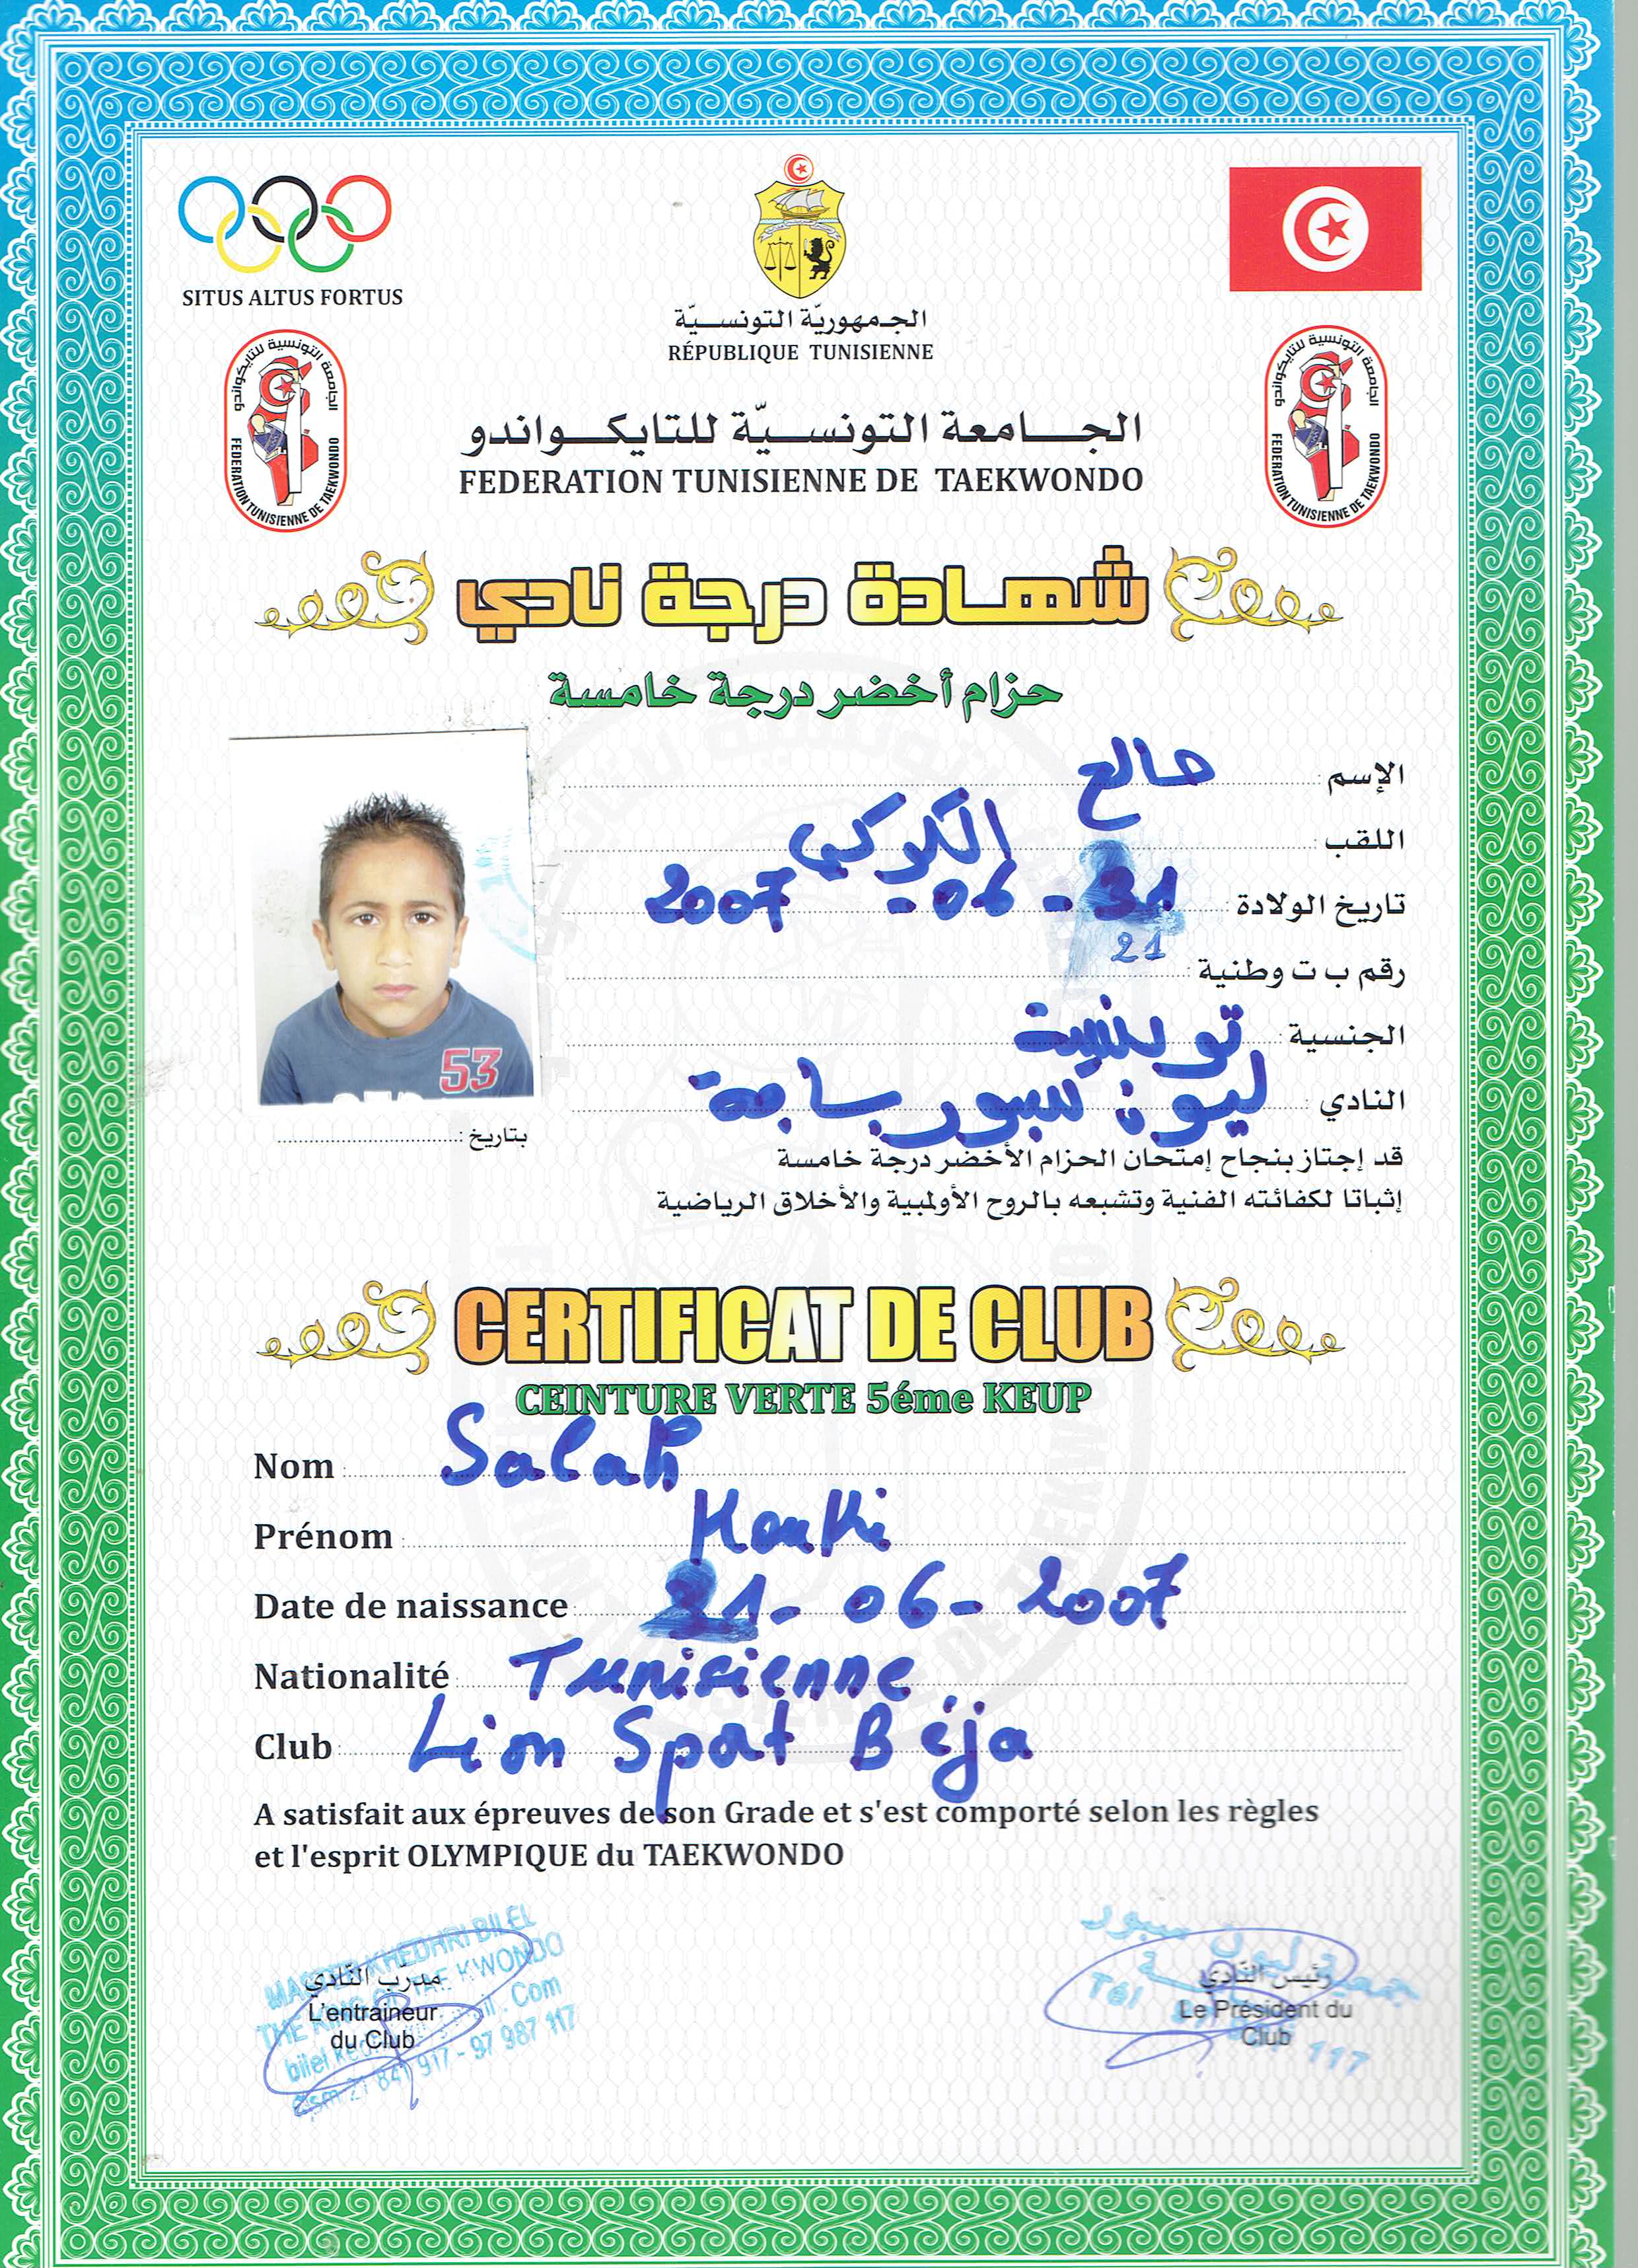 SITUS ALTUS FORTUS
الجمهوريّة التونسيّة
RÉPUBLIQUE TUNISIENNE
الجامعة التونسية للتايكواندو
FEDERATION TUNISIENNE DE TAEKWONDO
الجامعة التونسية للتايكواندو
FEDERATION TUNISIENNE DE TAEKWONDO
الجامعة التونسيّة للتايكواندو
FEDERATION TUNISIENNE DE TAEKWONDO
شهادة درجة نادي
حزام أخضر درجة خامسة
الإسم صالح
اللقب الكوكي
تاريخ الولادة 31 - 06 - 2007
21
رقم ب ت وطنية
الجنسية
النادي ليون سبور باجة
53
بتاريخ :
قد إجتاز بنجاح إمتحان الحزام الأخضر درجة خامسة
إثباتا لكفائته الفنية وتشبعه بالروح الأولمبية والأخلاق الرياضية
CERTIFICAT DE CLUB
CEINTURE VERTE 5éme KEUP
Nom Salah
Prénom Kouki
Date de naissance 21 - 06 - 2007
Nationalité Tunisienne
Club Lion Sport Béja
A satisfait aux épreuves de son Grade et s'est comporté selon les règles
et l'esprit OLYMPIQUE du TAEKWONDO
MASTER KHEDHRI BILEL
THE KING OF TAE KWONDO
مدرّب النّادي
L'entraineur
du Club
. Com
Gsm 21 841 917 - 97 987 117
جمعية ليون سبور
رئيس النّادي
Le Président du
Club
Tél
117